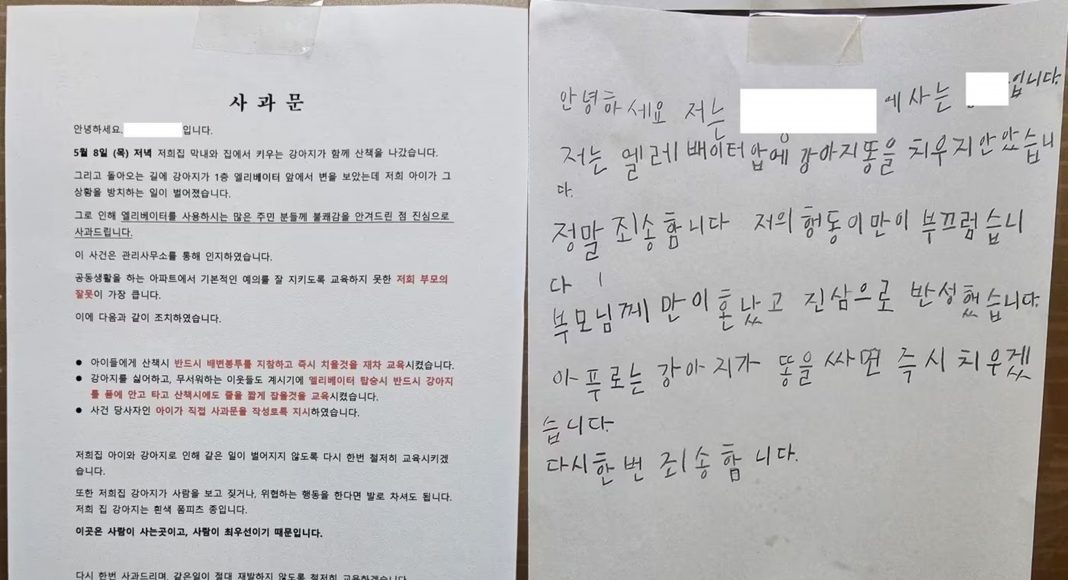 사 과 문
안녕하세요. 입니다.
5월 8일 (목) 저녁 저희집 막내와 집에서 키우는 강아지가 함께 산책을 나갔습니다.
그리고 돌아오는 길에 강아지가 1층 엘리베이터 앞에서 변을 보았는데 저희 아이가 그
상황을 방치하는 일이 벌어졌습니다.
그로 인해 엘리베이터를 사용하시는 많은 주민 분들께 불쾌감을 안겨드린 점 진심으로
사과드립니다.
이 사건은 관리사무소를 통해 인지하였습니다.
공동생활을 하는 아파트에서 기본적인 예의를 잘 지키도록 교육하지 못한 저희 부모의
잘못이 가장 큽니다.
이에 다음과 같이 조치하였습니다.
● 아이들에게 산책시 반드시 배변봉투를 지참하고 즉시 치울것을 재차 교육시켰습니다.
● 강아지를 싫어하고, 무서워하는 이웃들도 계시기에 엘리베이터 탑승시 반드시 강아지
를 품에 안고 타고 산책시에도 줄을 짧게 잡을것을 교육시켰습니다.
● 사건 당사자인 아이가 직접 사과문을 작성토록 지시하였습니다.
저희집 아이와 강아지로 인해 같은 일이 벌어지지 않도록 다시 한번 철저히 교육시키겠
습니다.
또한 저희집 강아지가 사람을 보고 짖거나, 위협하는 행동을 한다면 발로 차셔도 됩니다.
저희 집 강아지는 흰색 폼피츠 종입니다.
이곳은 사람이 사는곳이고, 사람이 최우선이기 때문입니다.
다시 한번 사과드리며, 같은일이 절대 재발하지 않도록 철저히 교육하겠습니다.
안녕하세요 저는 에 사는 입니다.
저는 엘레배이터 압에 강아지똥을 치우지안았습니
다.
정말 죄송합니다 저의 행동이만이 부끄럽습니
다
부모님께 만이혼났고 진심으로 반성했습니다.
아푸로는 강아지가 똥을 싸면 즉시 치우겠
습니다.
다시한번 죄송합니다.